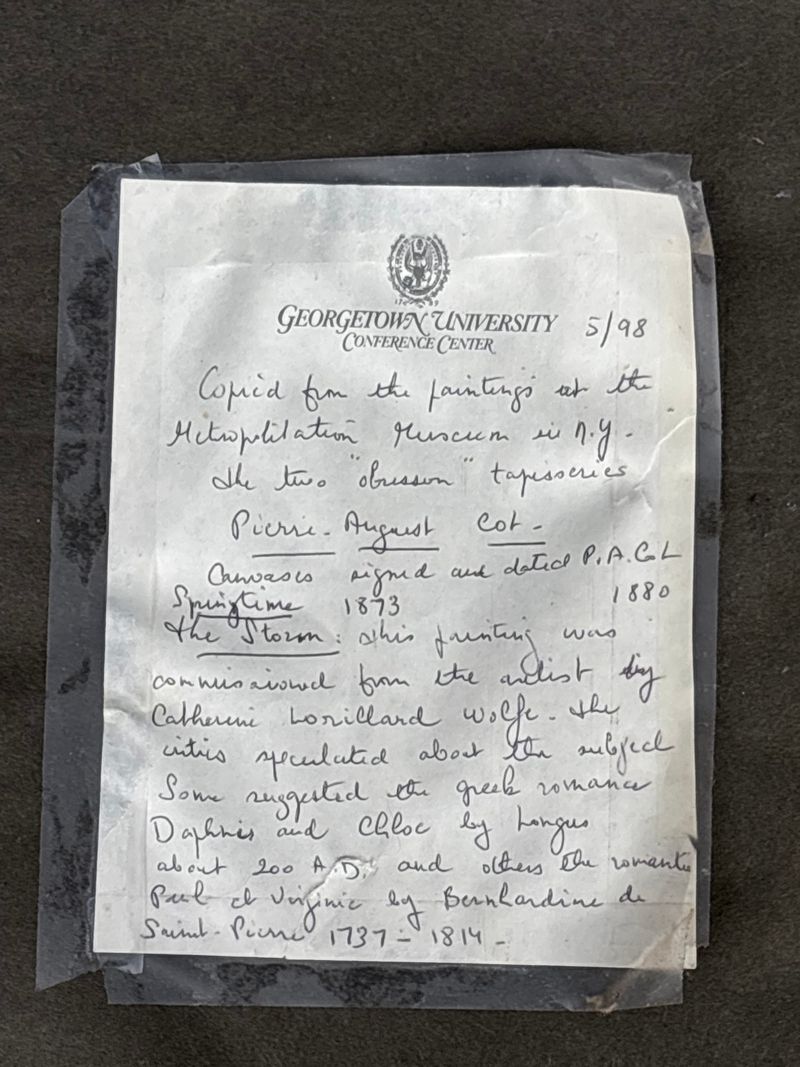 GEORGETOWN UNIVERSITY
CONFERENCE CENTER
5/98
Copied from the paintings at the
Metroplitation Museum in N.Y.
the two "obusson" tapisseries
Pierre-August Cot-
Canvases signed and dated P.A. Cot
Springtime 1873 1880
the Storm: this painting was
commissioned from the artist by
Catherine Lorillard Wolfe. the
critics speculated about the subject
Some suggested the greek romance
Daphnis and Chloe by Longus
about 200 A.D. and others the romantic
Paul et Virginie by Bernhardine de
Saint-Pierre 1737-1814-